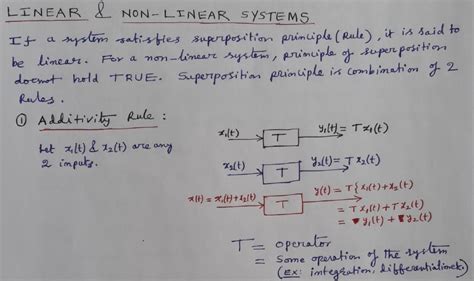 LINEAR & NON-LINEAR SYSTEMS
If a system satisfies superposition principle (Rule), it is said to
be linear. For a non-linear system, principle of superposition
doesnot hold TRUE. Superposition principle is combination of 2
Rules.
① Additivity Rule :
Let x₁(t) & x₂(t) are any
2 inputs.
x₁(t) T y₁(t) = T x₁(t)
x₂(t) T y₂(t) = T x₂(t)
x(t) = x₁(t) + x₂(t) T y(t) = T{x₁(t) + x₂(t)
= T x₁(t) + T x₂(t)
= y₁(t) + y₂(t)
T = operator
= Some operation of the system
(Ex: integration, differentiation etc.)